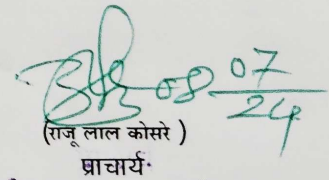 08 07
24
(राजू लाल कोसरे )
प्राचार्य